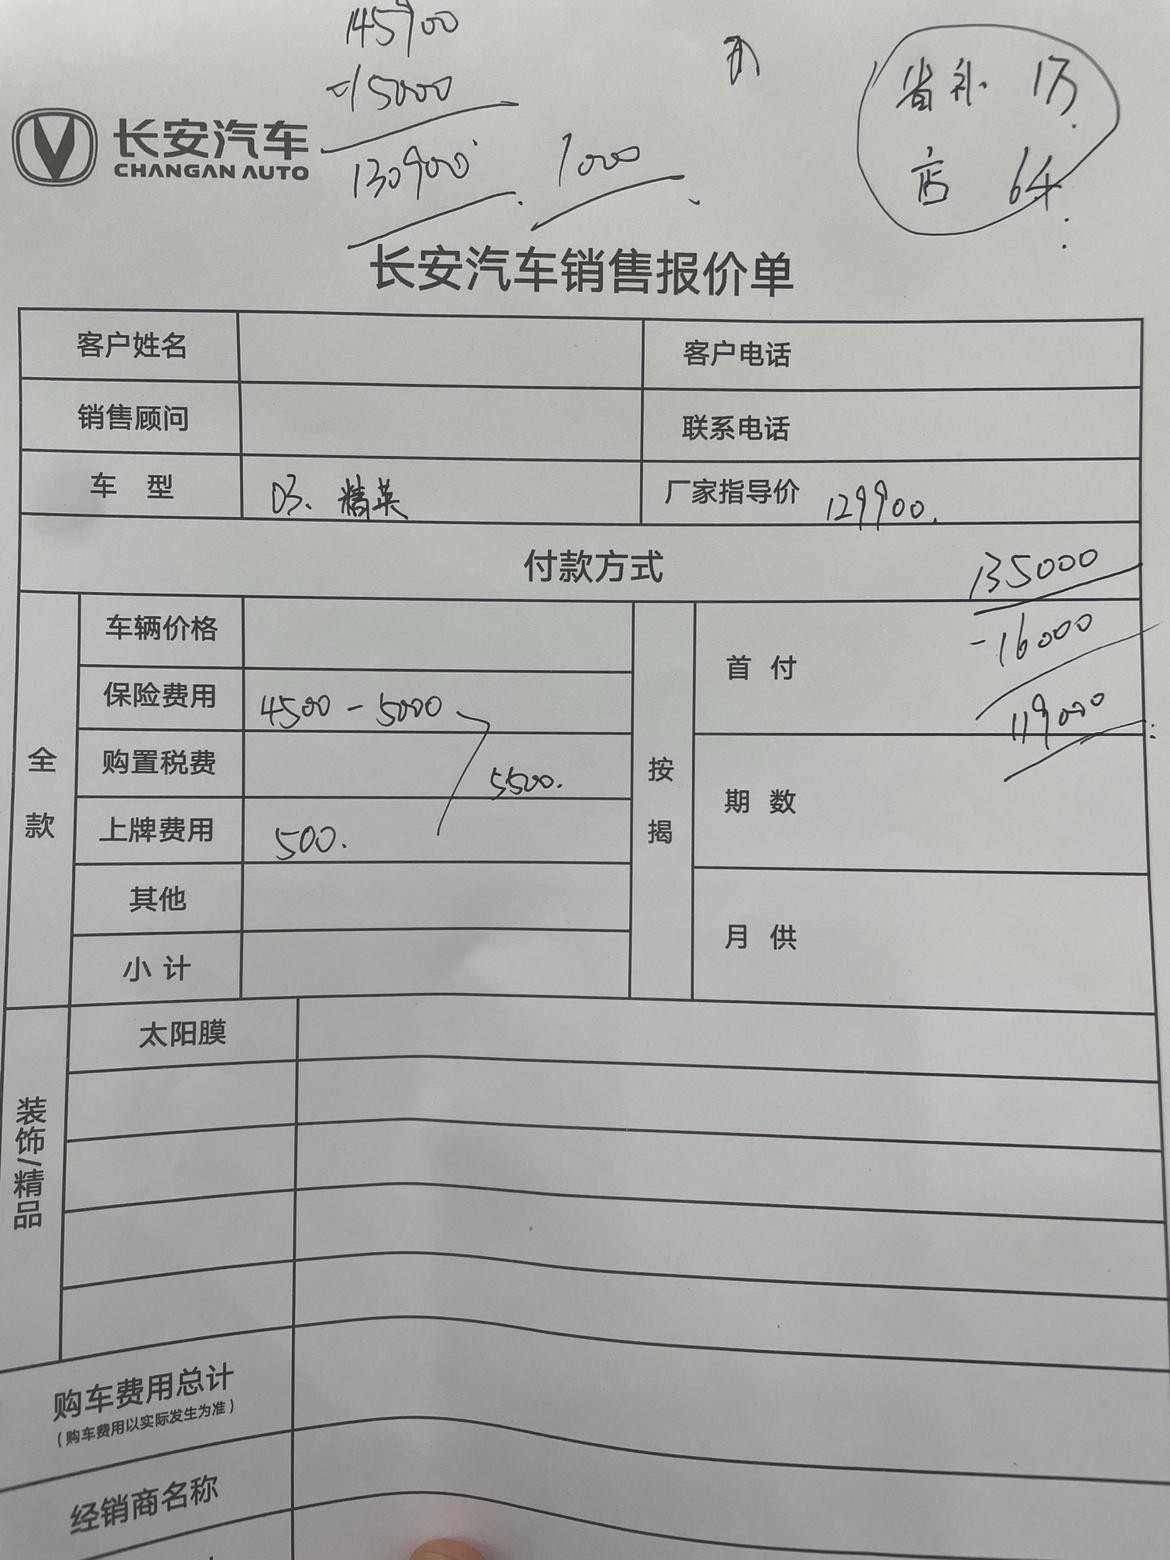 145900
-15000
130900
1000
省补 1万
店 6千
长安汽车
CHANGAN AUTO
长安汽车销售报价单
客户姓名 客户电话
销售顾问 联系电话
车 型 03、精英 厂家指导价 129900.
付款方式
135000
-16000
119000
全款
车辆价格
保险费用 4500-5000
购置税费 5500.
上牌费用 500.
其他
小计
按揭
首付
期数
月供
装饰/精品
太阳膜
购车费用总计
(购车费用以实际发生为准)
经销商名称